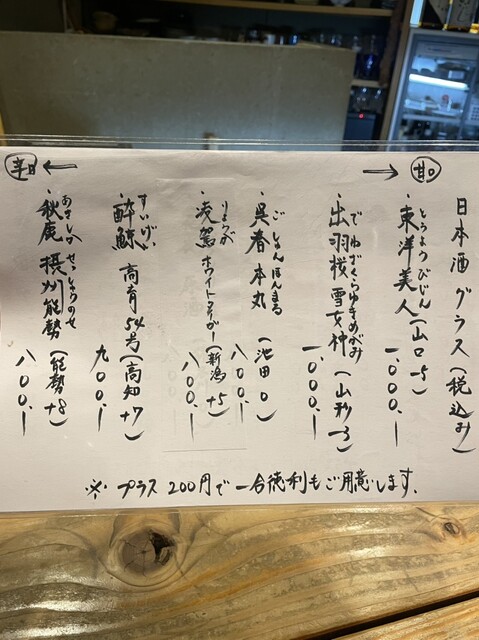 日本酒グラス(税込み)
甘口
とうようびじん
・東洋美人(山口-5)
一、〇〇〇、ー
でわざくらゆきめがみ
・出羽桜 雪女神(山形-3)
一、〇〇〇、ー
ごしゅんほんまる
・呉春本丸(池田 0)
八〇〇、ー
りょうが
・凌駕 ホワイトタイガー(新潟+5)
八〇〇、ー
すいげい
・酔鯨 高育54号(高知+7)
九〇〇、ー
あきしか せっしゅうのせ
・秋鹿 摂州能勢(能勢+8)
八〇〇、ー
辛口
※ プラス200円で一合徳利もご用意します。